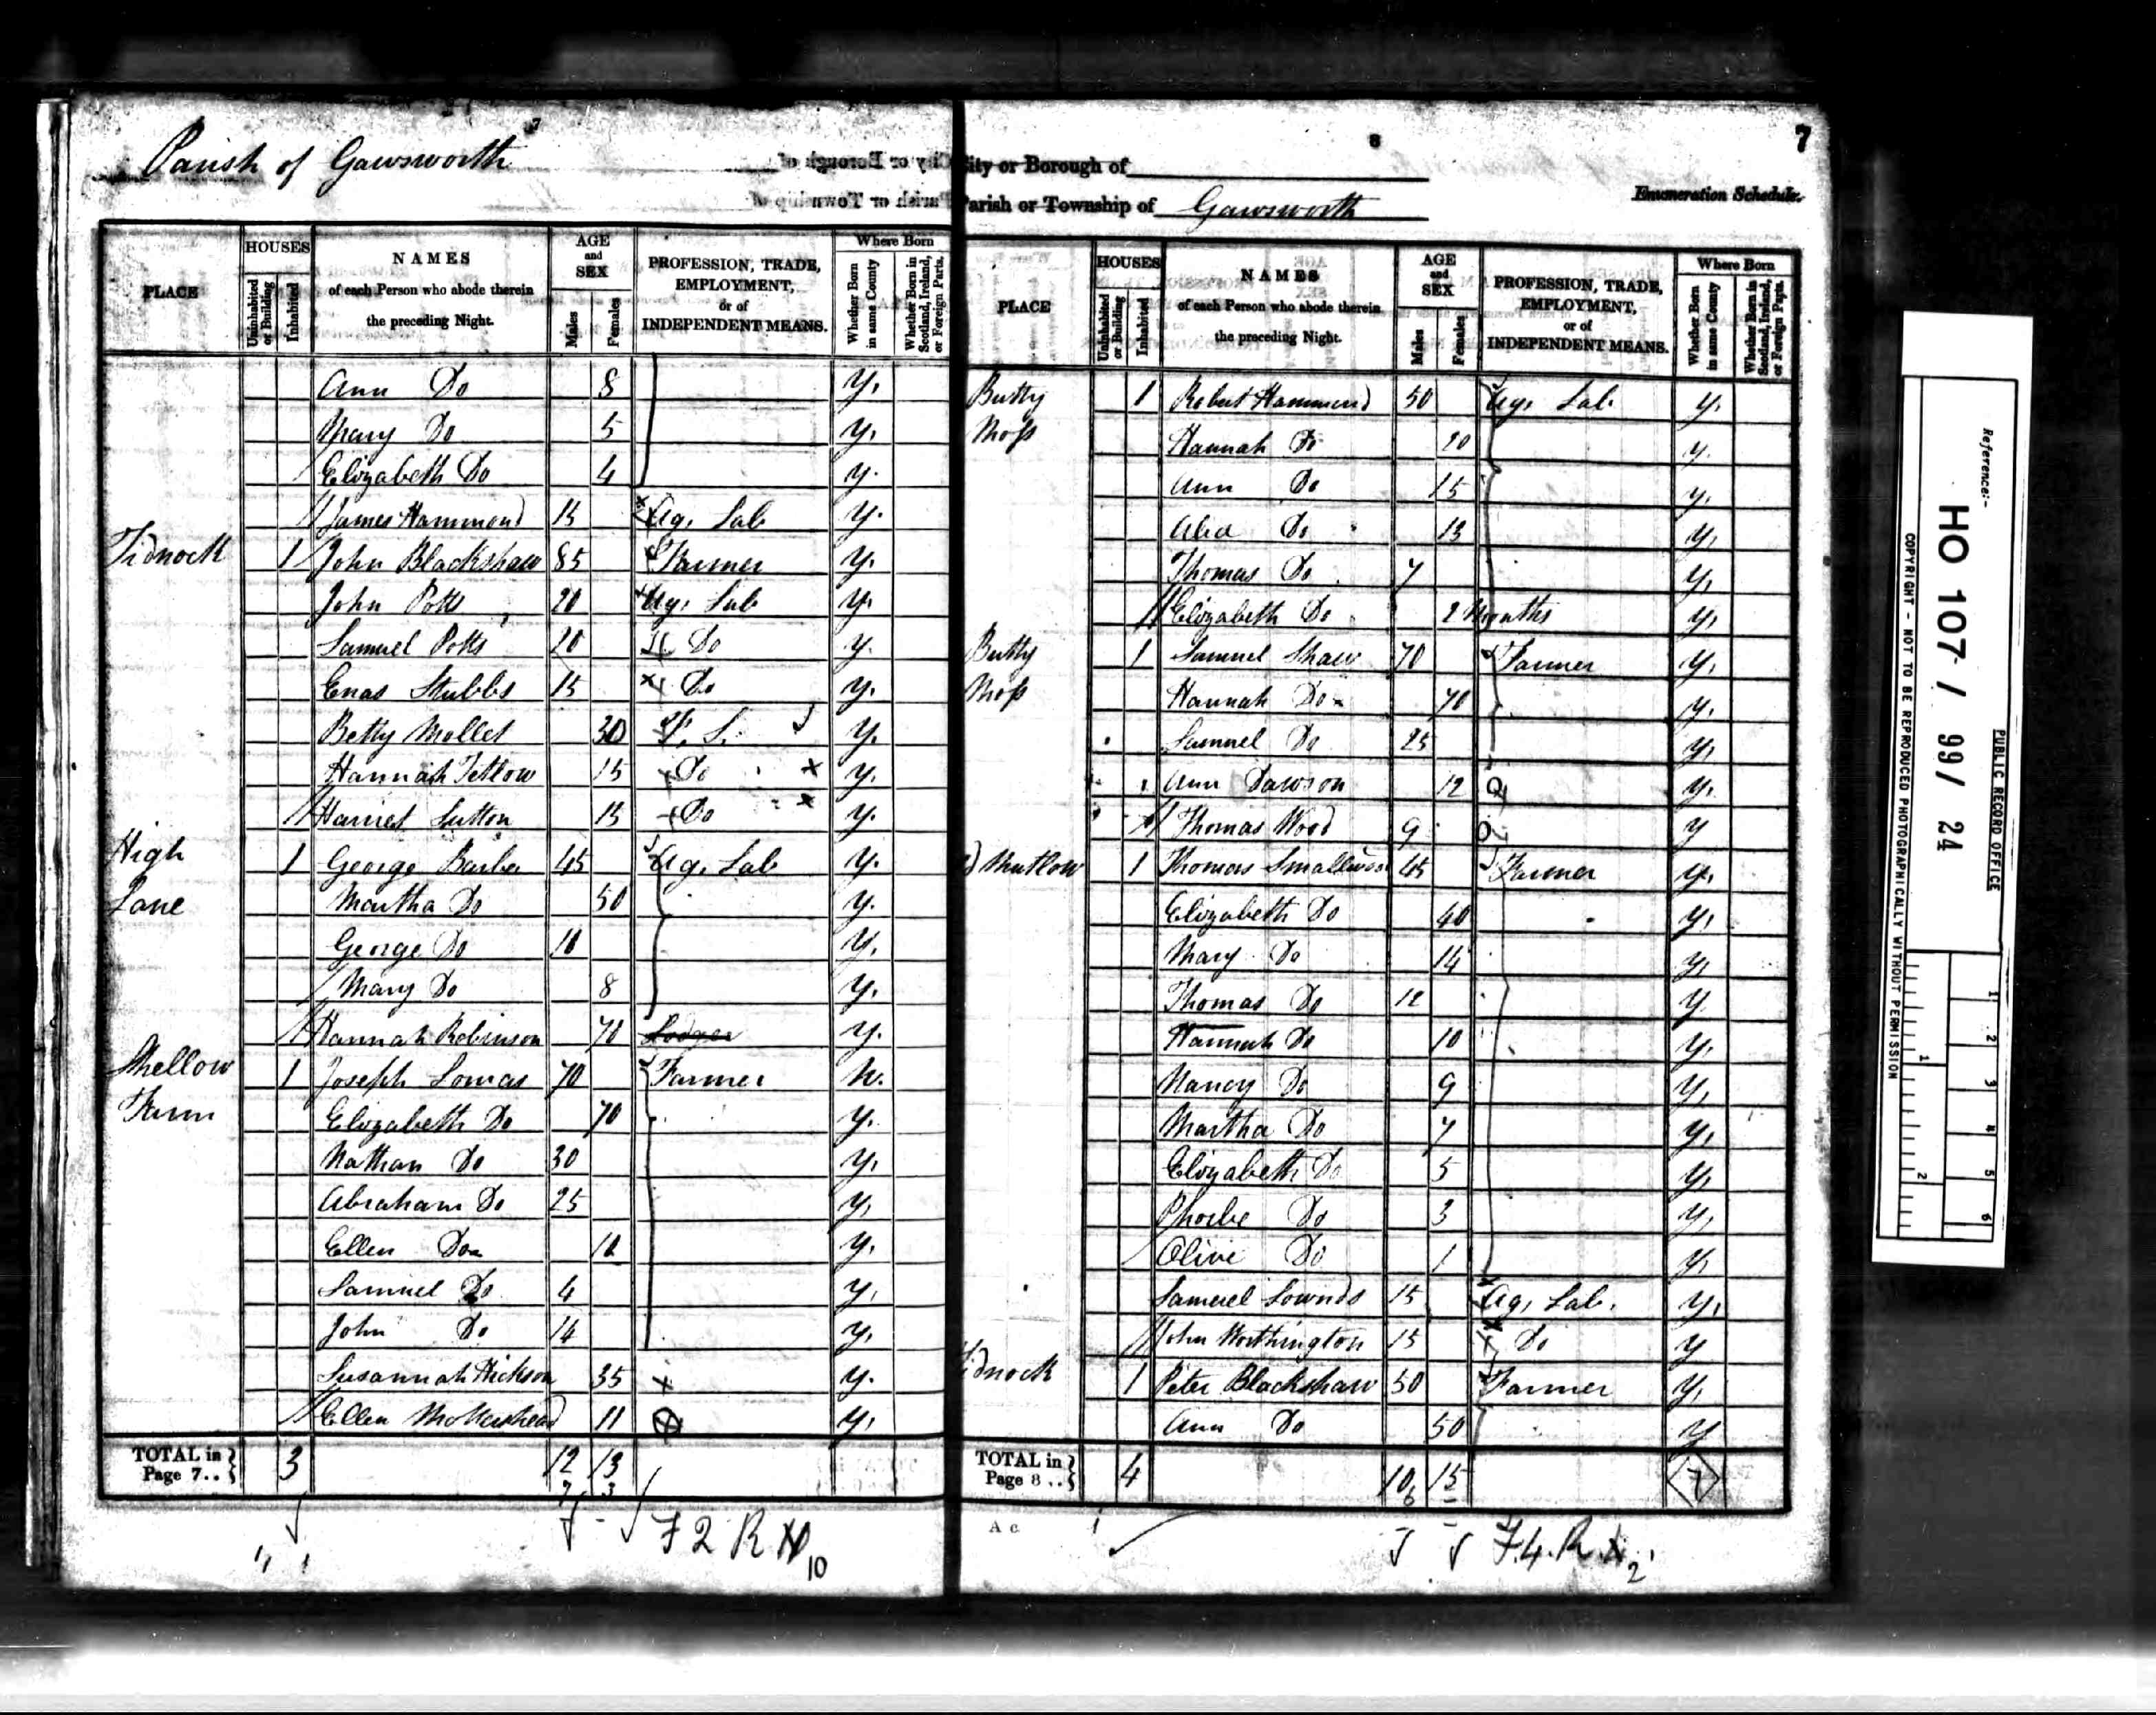 7
Parish of Gawsworth
PLACE
HOUSES
Uninhabited or Building
Inhabited
NAMES of each Person who abode therein the preceding Night.
AGE and SEX
Males
Females
PROFESSION, TRADE, EMPLOYMENT, or of INDEPENDENT MEANS.
Where Born
Whether Born in same County
Whether Born in Scotland, Ireland, or Foreign Parts.
Ann Do 8 y.
Mary Do 5 y.
Elizabeth Do 4 y.
James Hammond 15 Ag. Lab y.
Tidnock 1 John Blackshaw 85 Farmer y.
John Potts 20 Ag. Lab y.
Samuel Potts 20 Do y.
Enas Stubbs 15 Do y.
Betty Mollet 30 F. S. y.
Hannah Tetlow 15 Do y.
Harriet Sutton 15 Do y.
High 1 George Barber 45 Ag. Lab y.
Lane Martha Do 50 y.
George Do 10 y.
Mary Do 8 y.
Hannah Robinson 70 Lodger y.
Mellow 1 Joseph Lomas 70 Farmer N.
Farm Elizabeth Do 70 y.
Nathan Do 30 y.
Abraham Do 25 y.
Ellen Do y.
Samuel Do 4 y.
John Do 14 y.
Susannah Hickson 35 y.
Ellen Mottershead 11 y.
TOTAL in Page 7.. 3 12 13
F 2 R 10
8
7
City or Borough of
Parish or Township of Gawsworth
Enumeration Schedule.
PLACE
HOUSES
Uninhabited or Building
Inhabited
NAMES of each Person who abode therein the preceding Night.
AGE and SEX
Males
Females
PROFESSION, TRADE, EMPLOYMENT, or of INDEPENDENT MEANS.
Where Born
Whether Born in same County
Whether Born in Scotland, Ireland, or Foreign Parts.
Butty 1 Robert Hammond 50 Ag. Lab y.
Moss Hannah Do 20 y.
Ann Do 15 y.
Do 13 y.
Thomas Do 7 y.
Elizabeth Do 2 Months y.
Butty 1 Samuel Shaw 70 Farmer y.
Moss Hannah Do 70 y.
Samuel Do 25 y.
Ann Dawson 12 y.
Thomas Wood 9 y
Mutlow 1 Thomas Smallwood 45 Farmer y.
Elizabeth Do 40 y.
Mary Do 14 y.
Thomas Do 12 y.
Hannah Do 10 y.
Nancy Do 9 y.
Martha Do 7 y.
Elizabeth Do 5 y.
Phoebe Do 3 y.
Olive Do 1 y.
Samuel Lownds 15 Ag. Lab. y.
John Worthington 15 Do y
Tidnock 1 Peter Blackshaw 50 Farmer y.
Ann Do 50 y
TOTAL in Page 8.. 4 10 15 7
A c
F.4.R 2
Reference:-
HO 107 / 99/ 24
PUBLIC RECORD OFFICE
COPYRIGHT - NOT TO BE REPRODUCED PHOTOGRAPHICALLY WITHOUT PERMISSION
1 2
1 2 3 4 5 6